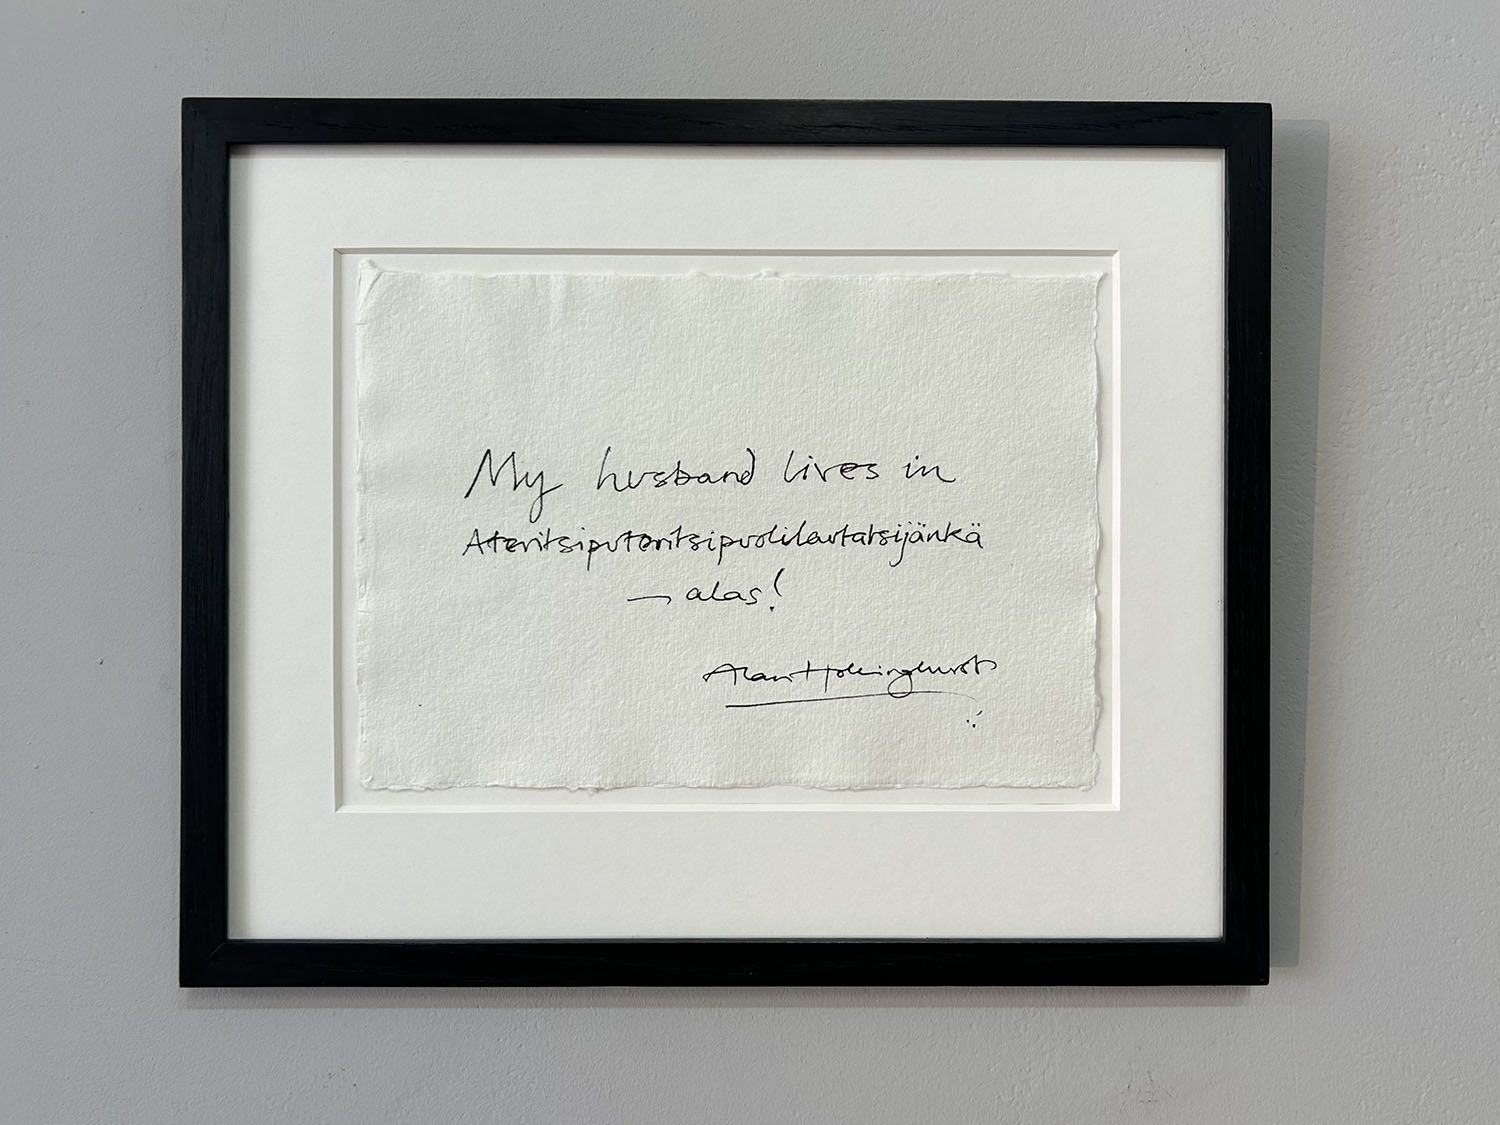 My husband lives in
Ateritsiputeritsipuolilautatsijänkä
— alas!
Alan Hollinghurst